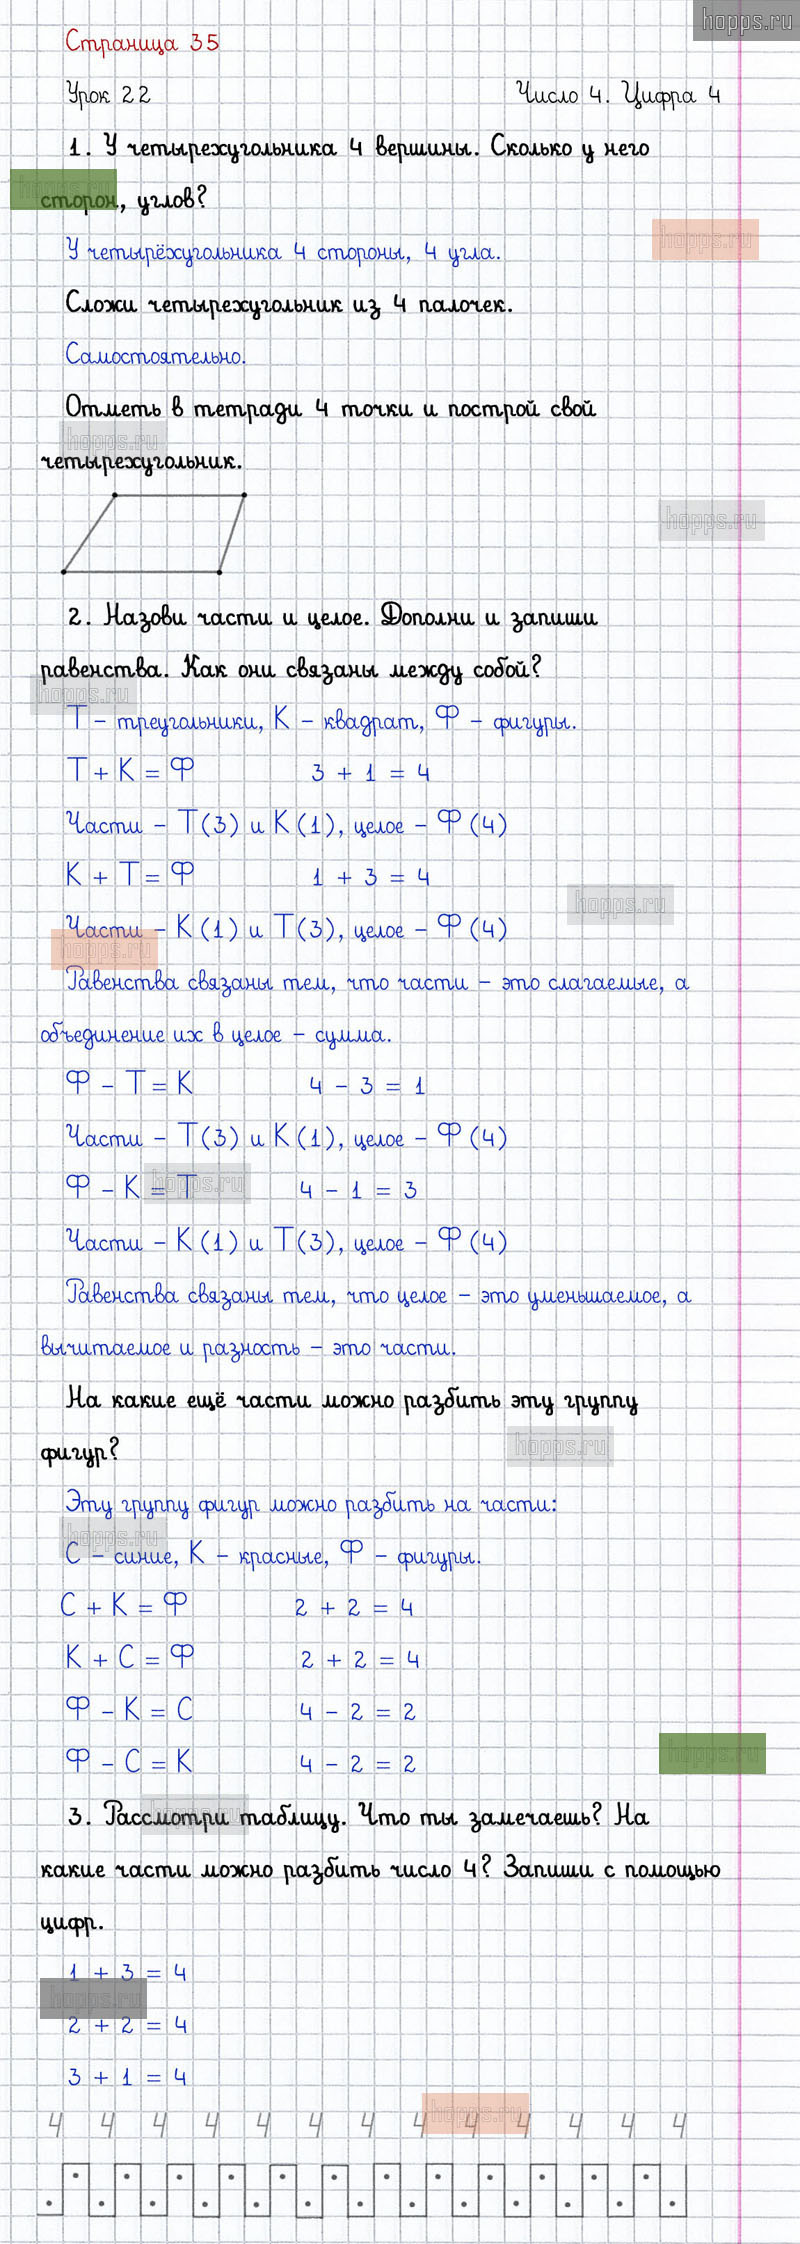 hopps.ru
Страница 35
Урок 22 Число 4. Цифра 4
1. У четырехугольника 4 вершины. Сколько у него
сторон, углов?
hopps.ru
У четырёхугольника 4 стороны, 4 угла.
hopps.ru
Сложи четырехугольник из 4 палочек.
Самостоятельно.
Отметь в тетради 4 точки и построй свой
hopps.ru
четырехугольник.
hopps.ru
2. Назови части и целое. Дополни и запиши
равенства. Как они связаны между собой?
hopps.ru
Т – треугольники, К – квадрат, Ф – фигуры.
Т + К = Ф 3 + 1 = 4
Части – Т(3) и К(1), целое – Ф(4)
К + Т = Ф 1 + 3 = 4
hopps.ru
Части – К(1) и Т(3), целое – Ф(4)
hopps.ru
Равенства связаны тем, что части – это слагаемые, а
объединение их в целое – сумма.
Ф – Т = К 4 – 3 = 1
Части – Т(3) и К(1), целое – Ф(4)
Ф – К = Т 4 – 1 = 3
hopps.ru
Части – К(1) и Т(3), целое – Ф(4)
Равенства связаны тем, что целое – это уменьшаемое, а
вычитаемое и разность – это части.
На какие ещё части можно разбить эту группу
фигур?
hopps.ru
Эту группу фигур можно разбить на части:
hopps.ru
С – синие, К – красные, Ф – фигуры.
С + К = Ф 2 + 2 = 4
К + С = Ф 2 + 2 = 4
Ф – К = С 4 – 2 = 2
Ф – С = К 4 – 2 = 2
hopps.ru
3. Рассмотри таблицу. Что ты замечаешь? На
hopps.ru
какие части можно разбить число 4? Запиши с помощью
цифр.
1 + 3 = 4
hopps.ru
2 + 2 = 4
3 + 1 = 4
hopps.ru
4 4 4 4 4 4 4 4 4 4 4 4 4